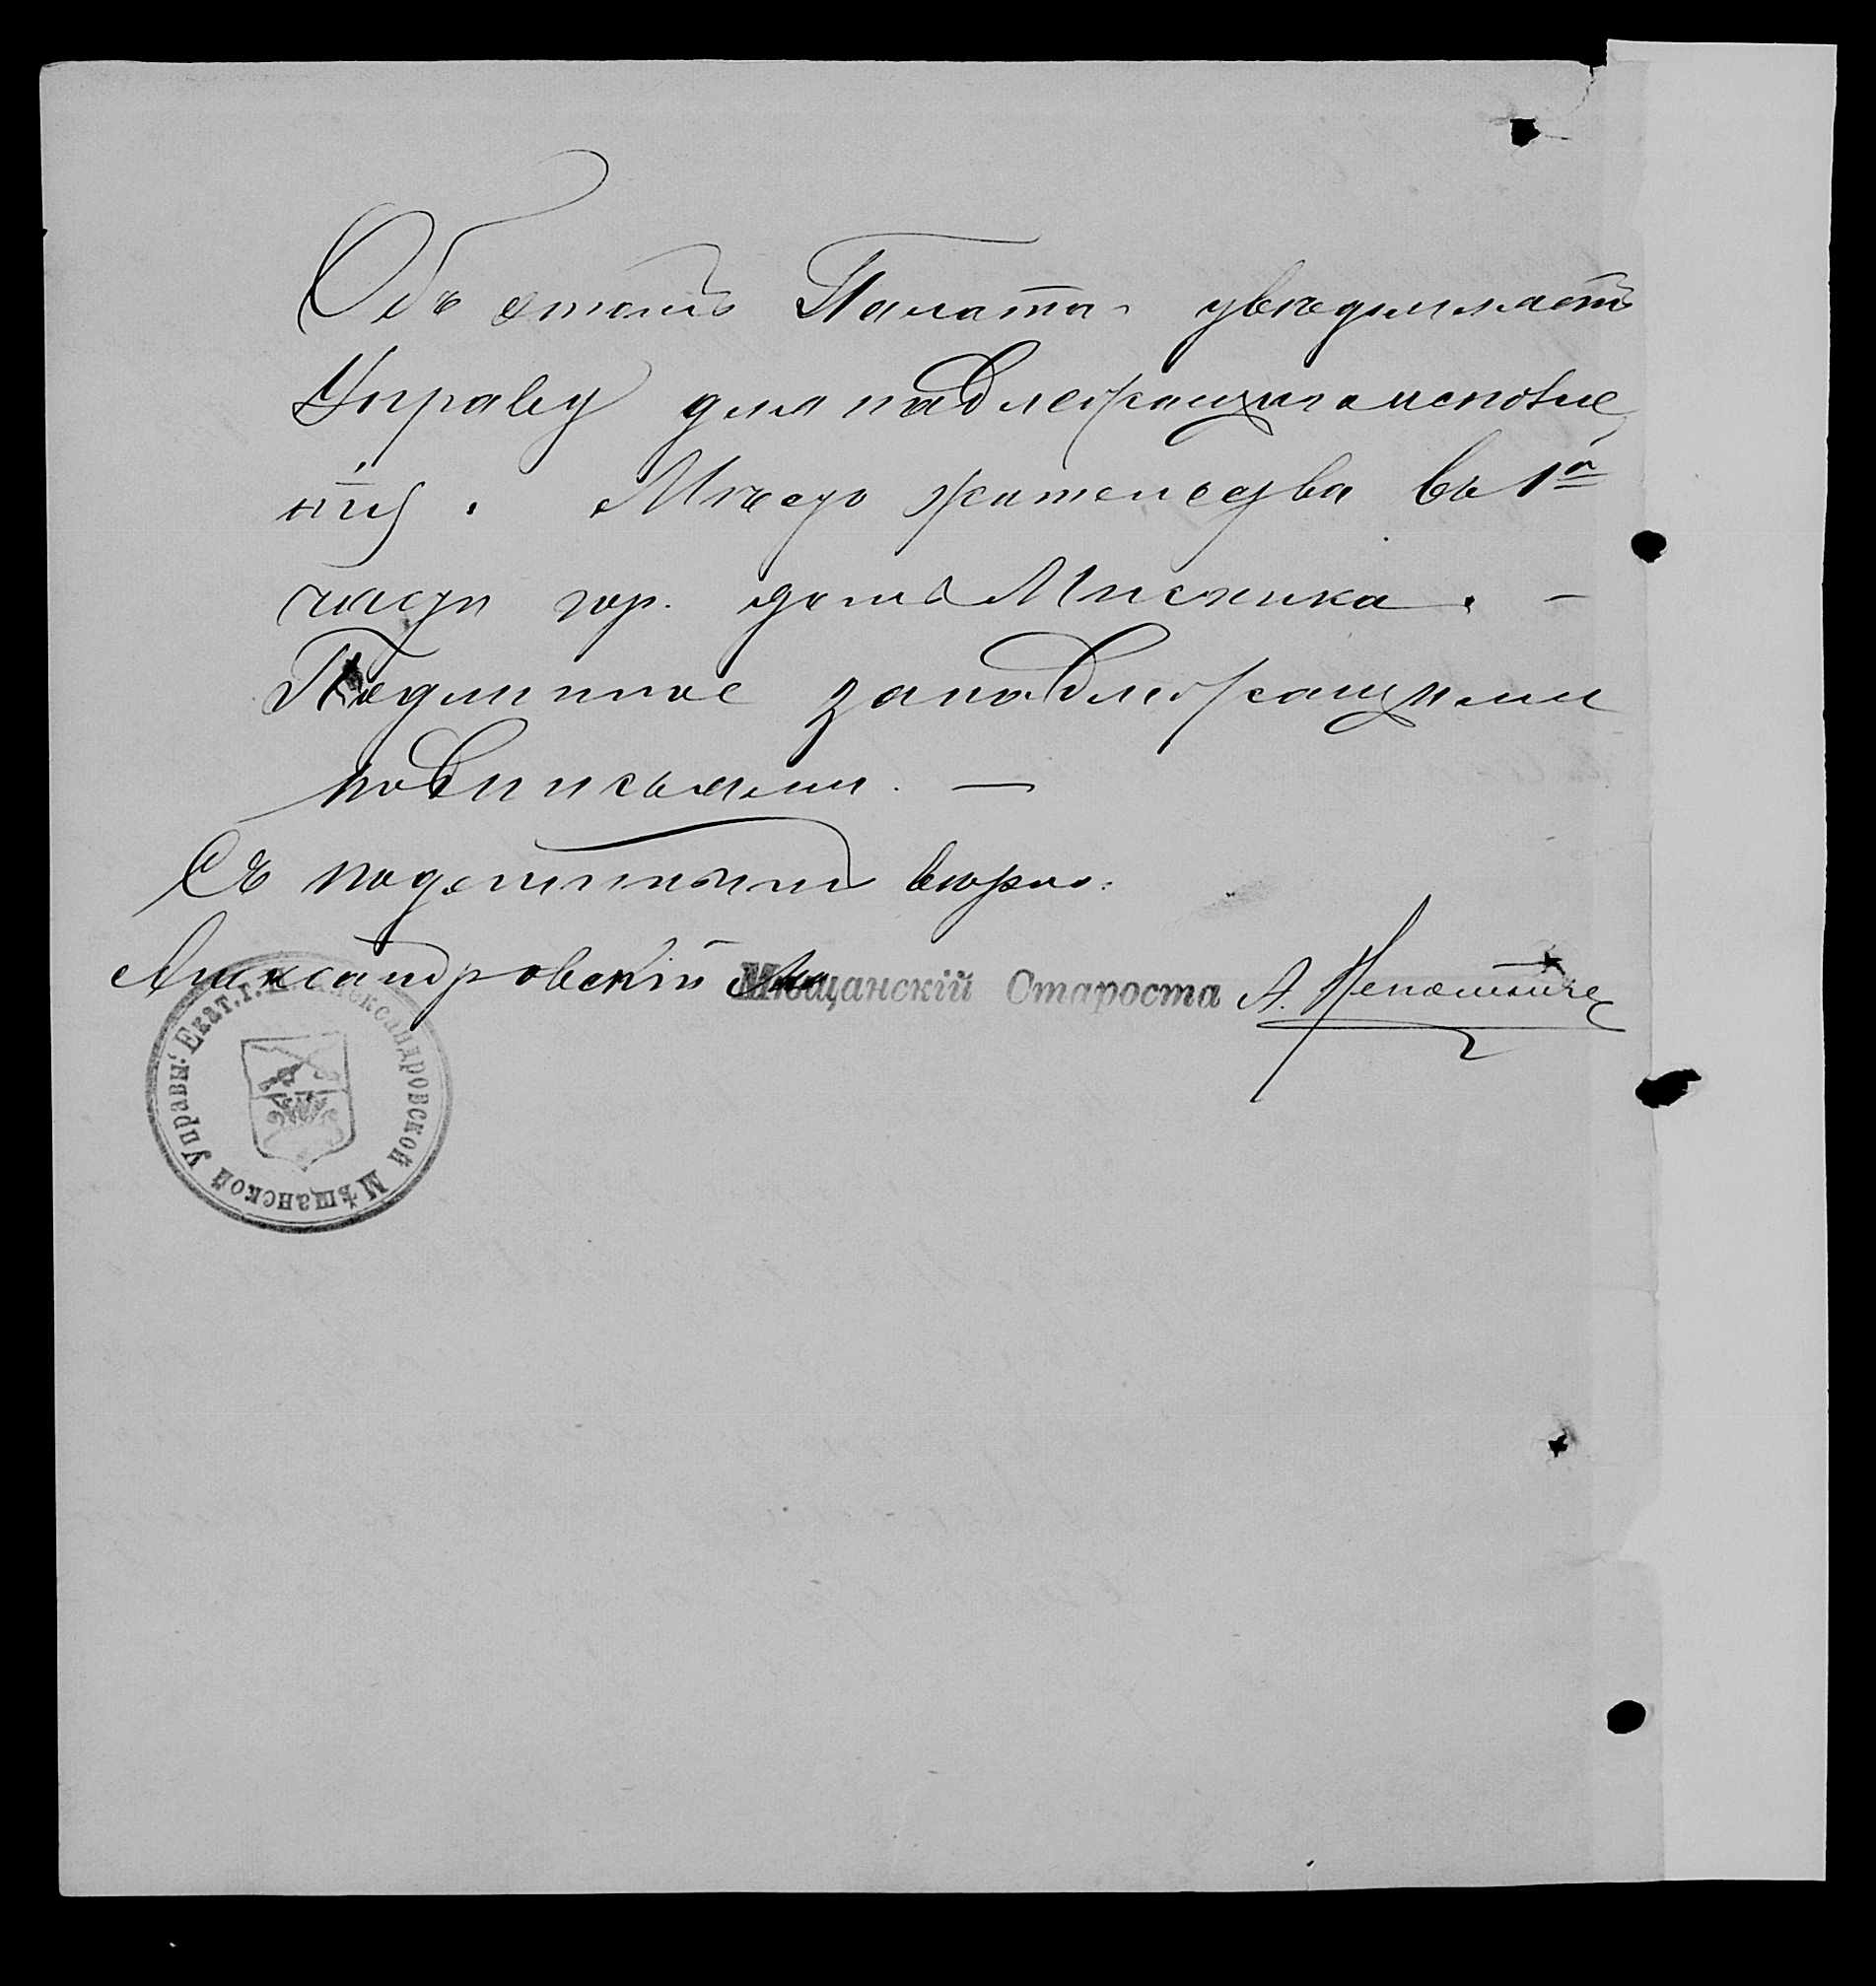 Объ этомъ Палата увѣдомляетъ
Управу для надлежащаго исполне
нія. Мѣсто жительства въ 1й
части гор. домъ Мисника. —
Подлинное за надлежащими
подписями. —
Съ подлиннымъ вѣрно:
Александровскій Мѣщанскій Староста А.
Екат. г. Александровской Мѣщанской Управы